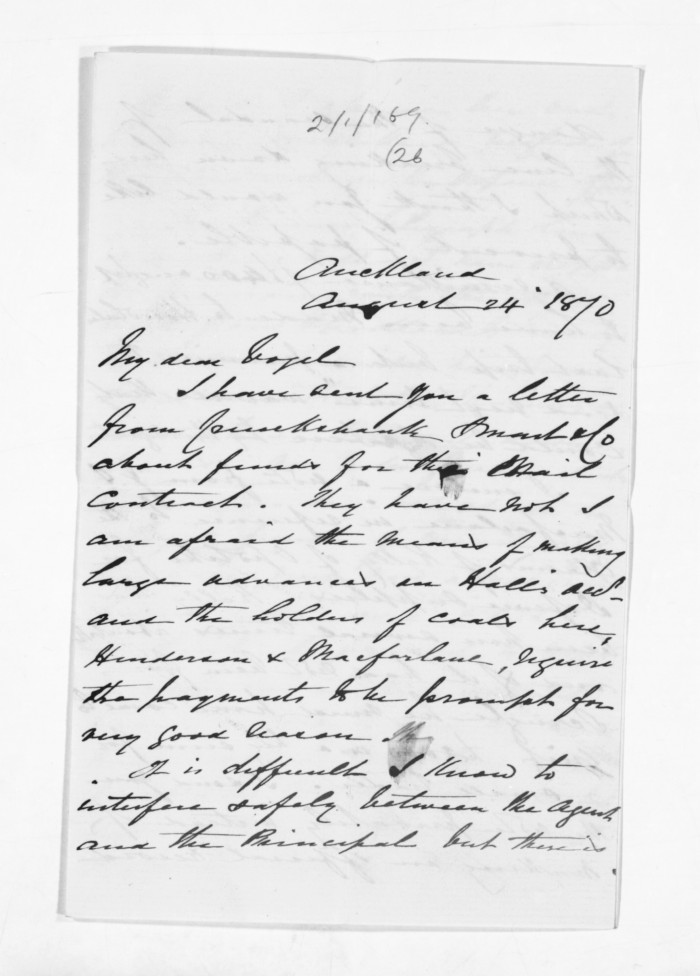 2/1/169.
(26
Auckland
August 24 1870
My dear Vogel
I have sent you a letter
from Cruickshank Smart & Co
about funds for the Mail
Contract. They have not I
am afraid the means of making
large advances on Hall's acct
and the holders of coals here,
Henderson & Macfarlane, require
the payments to be prompt for
very good reason
It is difficult I know to
interfere safely between the Agent
and the Principal but there is